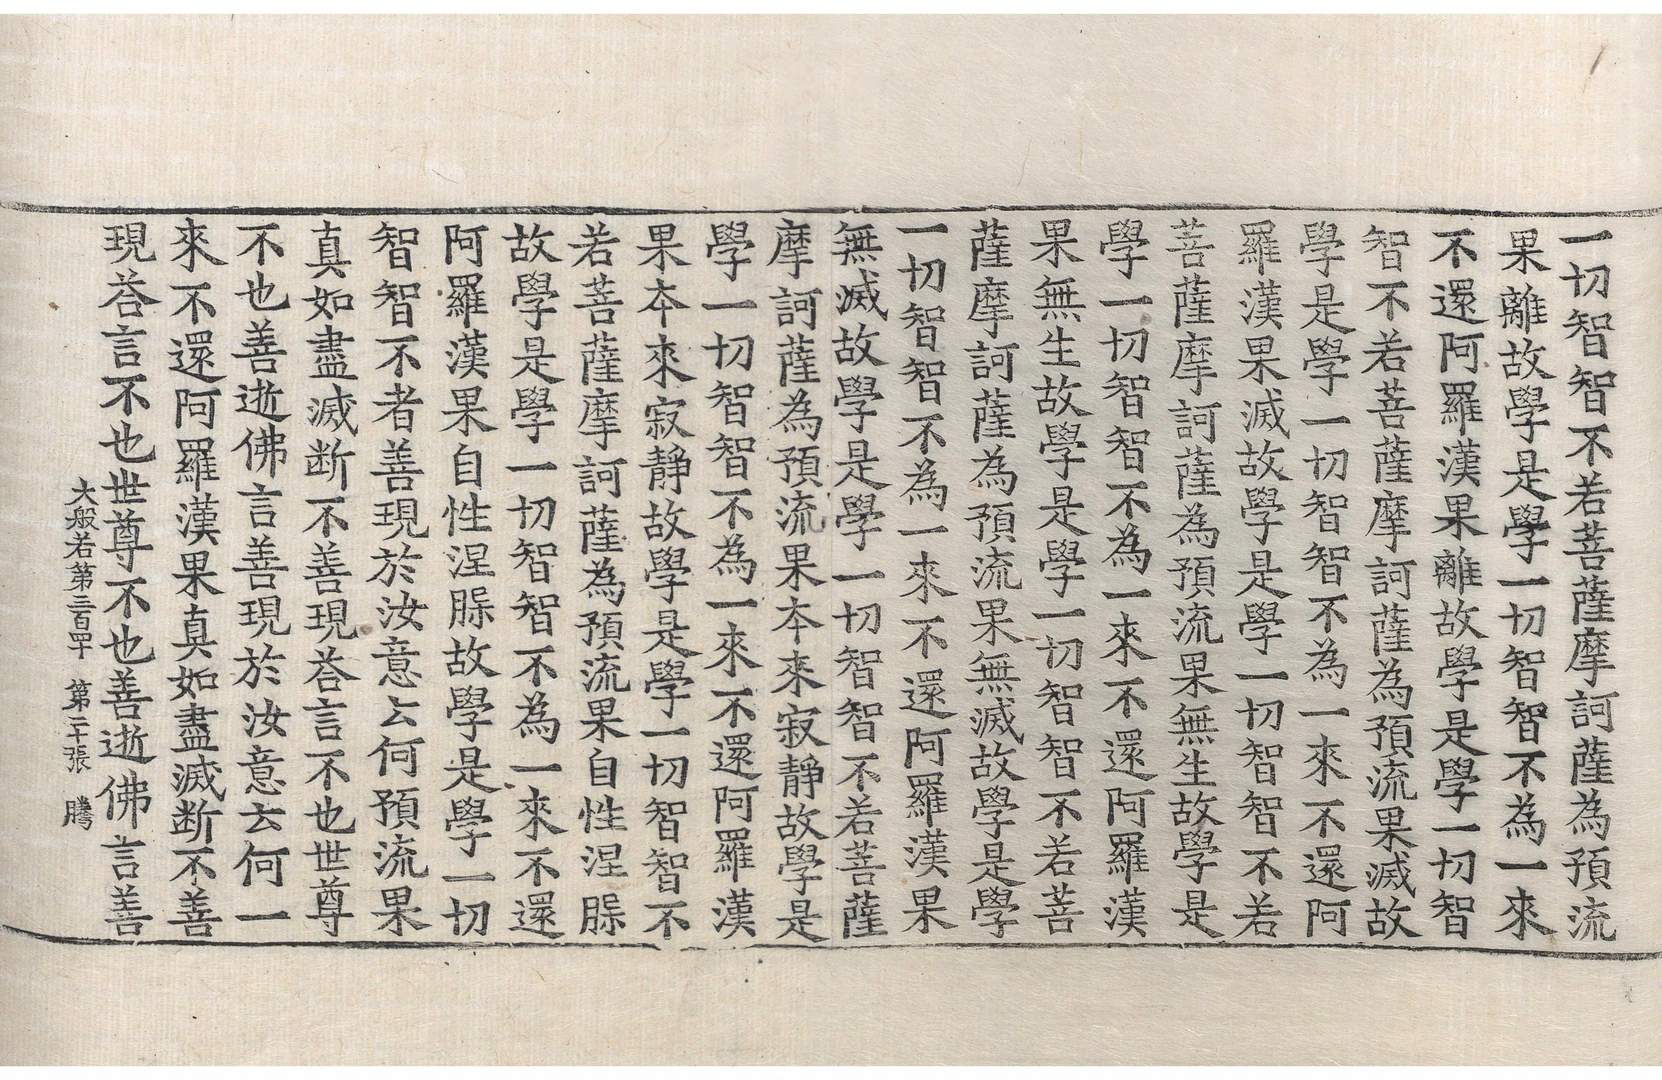 一切智智不若菩薩摩訶薩為預流
果離故學是學一切智智不為一來
不還阿羅漢果離故學是學一切智
智不若菩薩摩訶薩為預流果滅故
學是學一切智智不為一來不還阿
羅漢果滅故學是學一切智智不若
菩薩摩訶薩為預流果無生故學是
學一切智智不為一來不還阿羅漢
果無生故學是學一切智智不若菩
薩摩訶薩為預流果無滅故學是學
一切智智不為一來不還阿羅漢果
無滅故學是學一切智智不若菩薩
摩訶薩為預流果夲來寂靜故學是
學一切智智不為一來不還阿羅漢
果夲來寂靜故學是學一切智智不
若菩薩摩訶薩為預流果自性涅槃
故學是學一切智智不為一來不還
阿羅漢果自性涅槃故學是學一切
智智不者善現於汝意云何預流果
真如盡滅断不善現荅言不也世尊
不也善逝佛言善現於汝意云何一
來不還阿羅漢果真如盡滅断不善
現荅言不也世尊不也善逝佛言善
大般若第三百四十 第二十張 騰